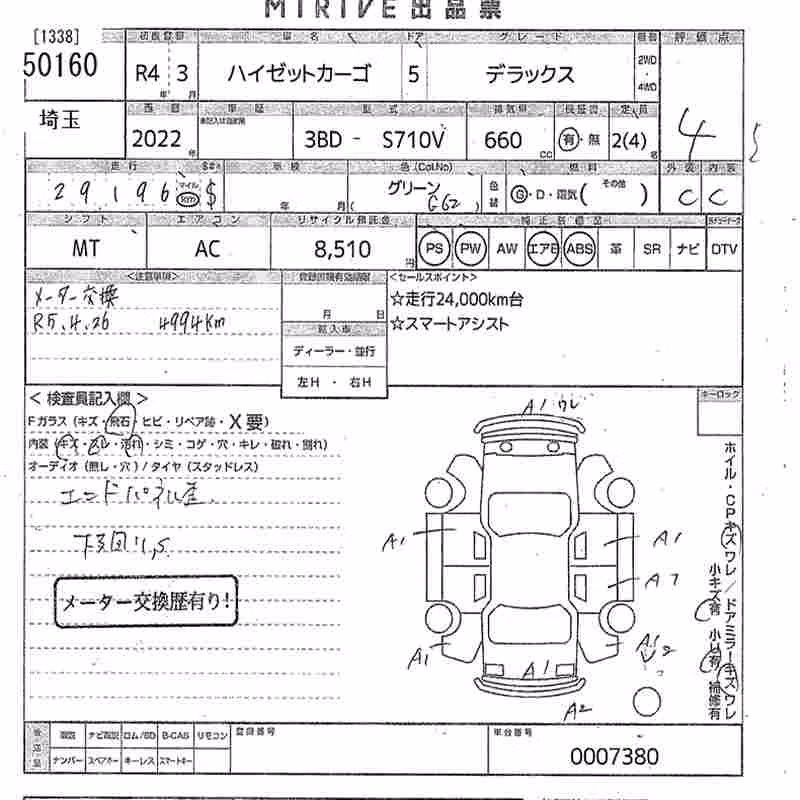 MIRIVE 出品票
[1338] 初度登録 車名 ドア グレード 車歴 評価点
50160 R4年 3月 ハイゼットカーゴ 5 デラックス 2WD・4WD 4
埼玉 西暦 車証 型式 排気量 保証書 定員
2022年 3BD - S710V 660cc 有・無 2(4)名
走行 車検 色(Col.No) 色替 燃料 外装 内装
29,196 マイル km $ 年 月 グリーン (G62) G・D・電気 (その他 ) C C
シフト エアコン リサイクル預託金 純正装備品
MT AC 8,510円 PS PW AW エアB ABS 革 SR ナビ DTV
<注意事項> 登録書類有効期限 <セールスポイント>
メーター交換 ☆走行24,000km台
R5.4.26 4994km 月 日 ☆スマートアシスト
輸入車
ディーラー・並行
左H ・ 右H
< 検査員記入欄 > キーロック
Fガラス (キズ・飛石・ヒビ・リペア跡・X要)
内装 (キズ・ヨレ・汚れ・シミ・コゲ・穴・キレ・破れ・割れ)
オーディオ (無し・穴) / タイヤ (スタッドレス)
エンドパネル歪
下廻りS
メーター交換歴有り!
A1 ワレ
A1
A1
A7
A1
A1
A2
ホイル・CPキズ ワレ / ドアミラーキズ ワレ
小キズ有 小凹有 補修有
後送品 取説 ナビ取説 ロム/SD B-CAS リモコン 登録番号 車台番号
ナンバー スペアキー キーレス スマートキー 0007380